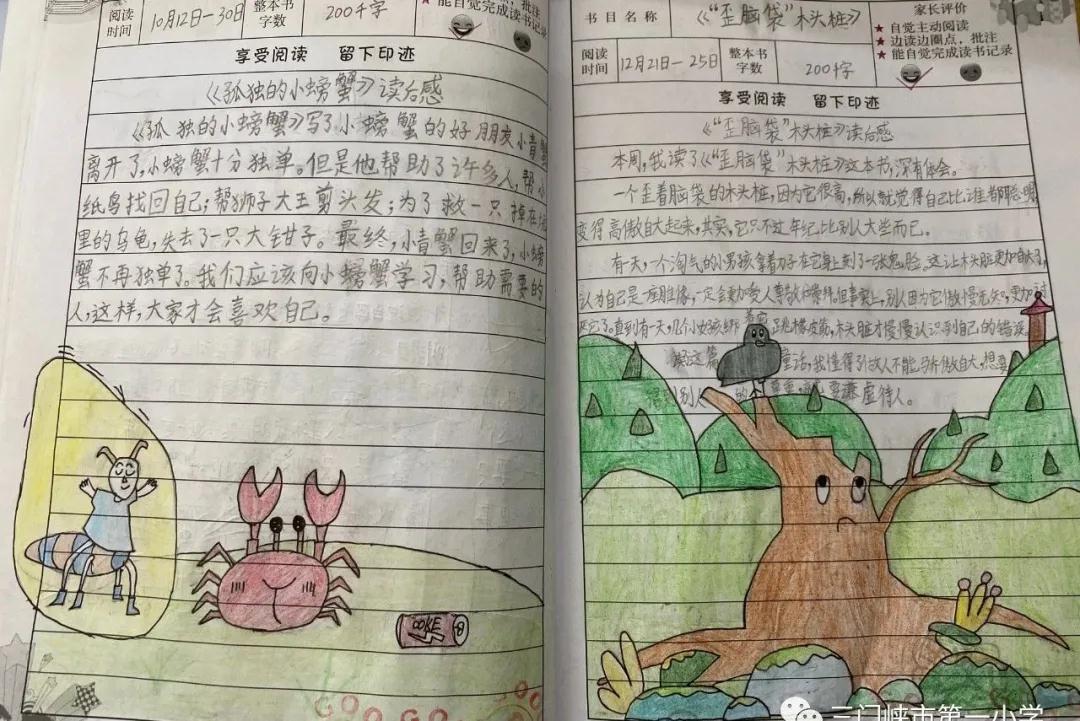 阅读时间
10月12日—30日
整本书字数
200千字
批注
能自觉完成读书记录
享受阅读 留下印迹
《孤独的小螃蟹》读后感
《孤独的小螃蟹》写了小螃蟹的好朋友小青蟹
离开了,小螃蟹十分独单。但是他帮助了许多人,帮小
纸鸟找回自己;帮狮子大王剪头发;为了救一只掉在
里的乌龟,失去了一只大钳子。最终,小青蟹回来了,小螃
蟹不再独单了。我们应该向小螃蟹学习,帮助需要的
人,这样,大家才会喜欢自己。
COKE
书目名称
《“歪脑袋”木头桩》
家长评价
自觉主动阅读
边读边圈点,批注
能自觉完成读书记录
阅读时间
12月21日—25日
整本书字数
200千字
享受阅读 留下印迹
《“歪脑袋”木头桩》读后感
本周,我读了《“歪脑袋”木头桩》这本书,深有体会。
一个歪着脑袋的木头桩,因为它很高,所以就觉得自己比谁都聪明,
变得高傲自大起来,其实,它只不过年纪比别人大些而已。
有一天,一个淘气的小男孩拿着刀子在它身上刻了一张鬼脸。这让木头桩更加自大了,
认为自己是一座雕像,一定会更加受人尊敬和崇拜。但事实上,别人因为它傲慢无知,更加讨
厌它了。直到有一天,几个小女孩绑着它跳橡皮筋,木头桩才慢慢认识到自己的错误。
读这篇童话,我懂得了做人不能骄傲自大,想要
别人的 虚待人。
三门峡市第一小学